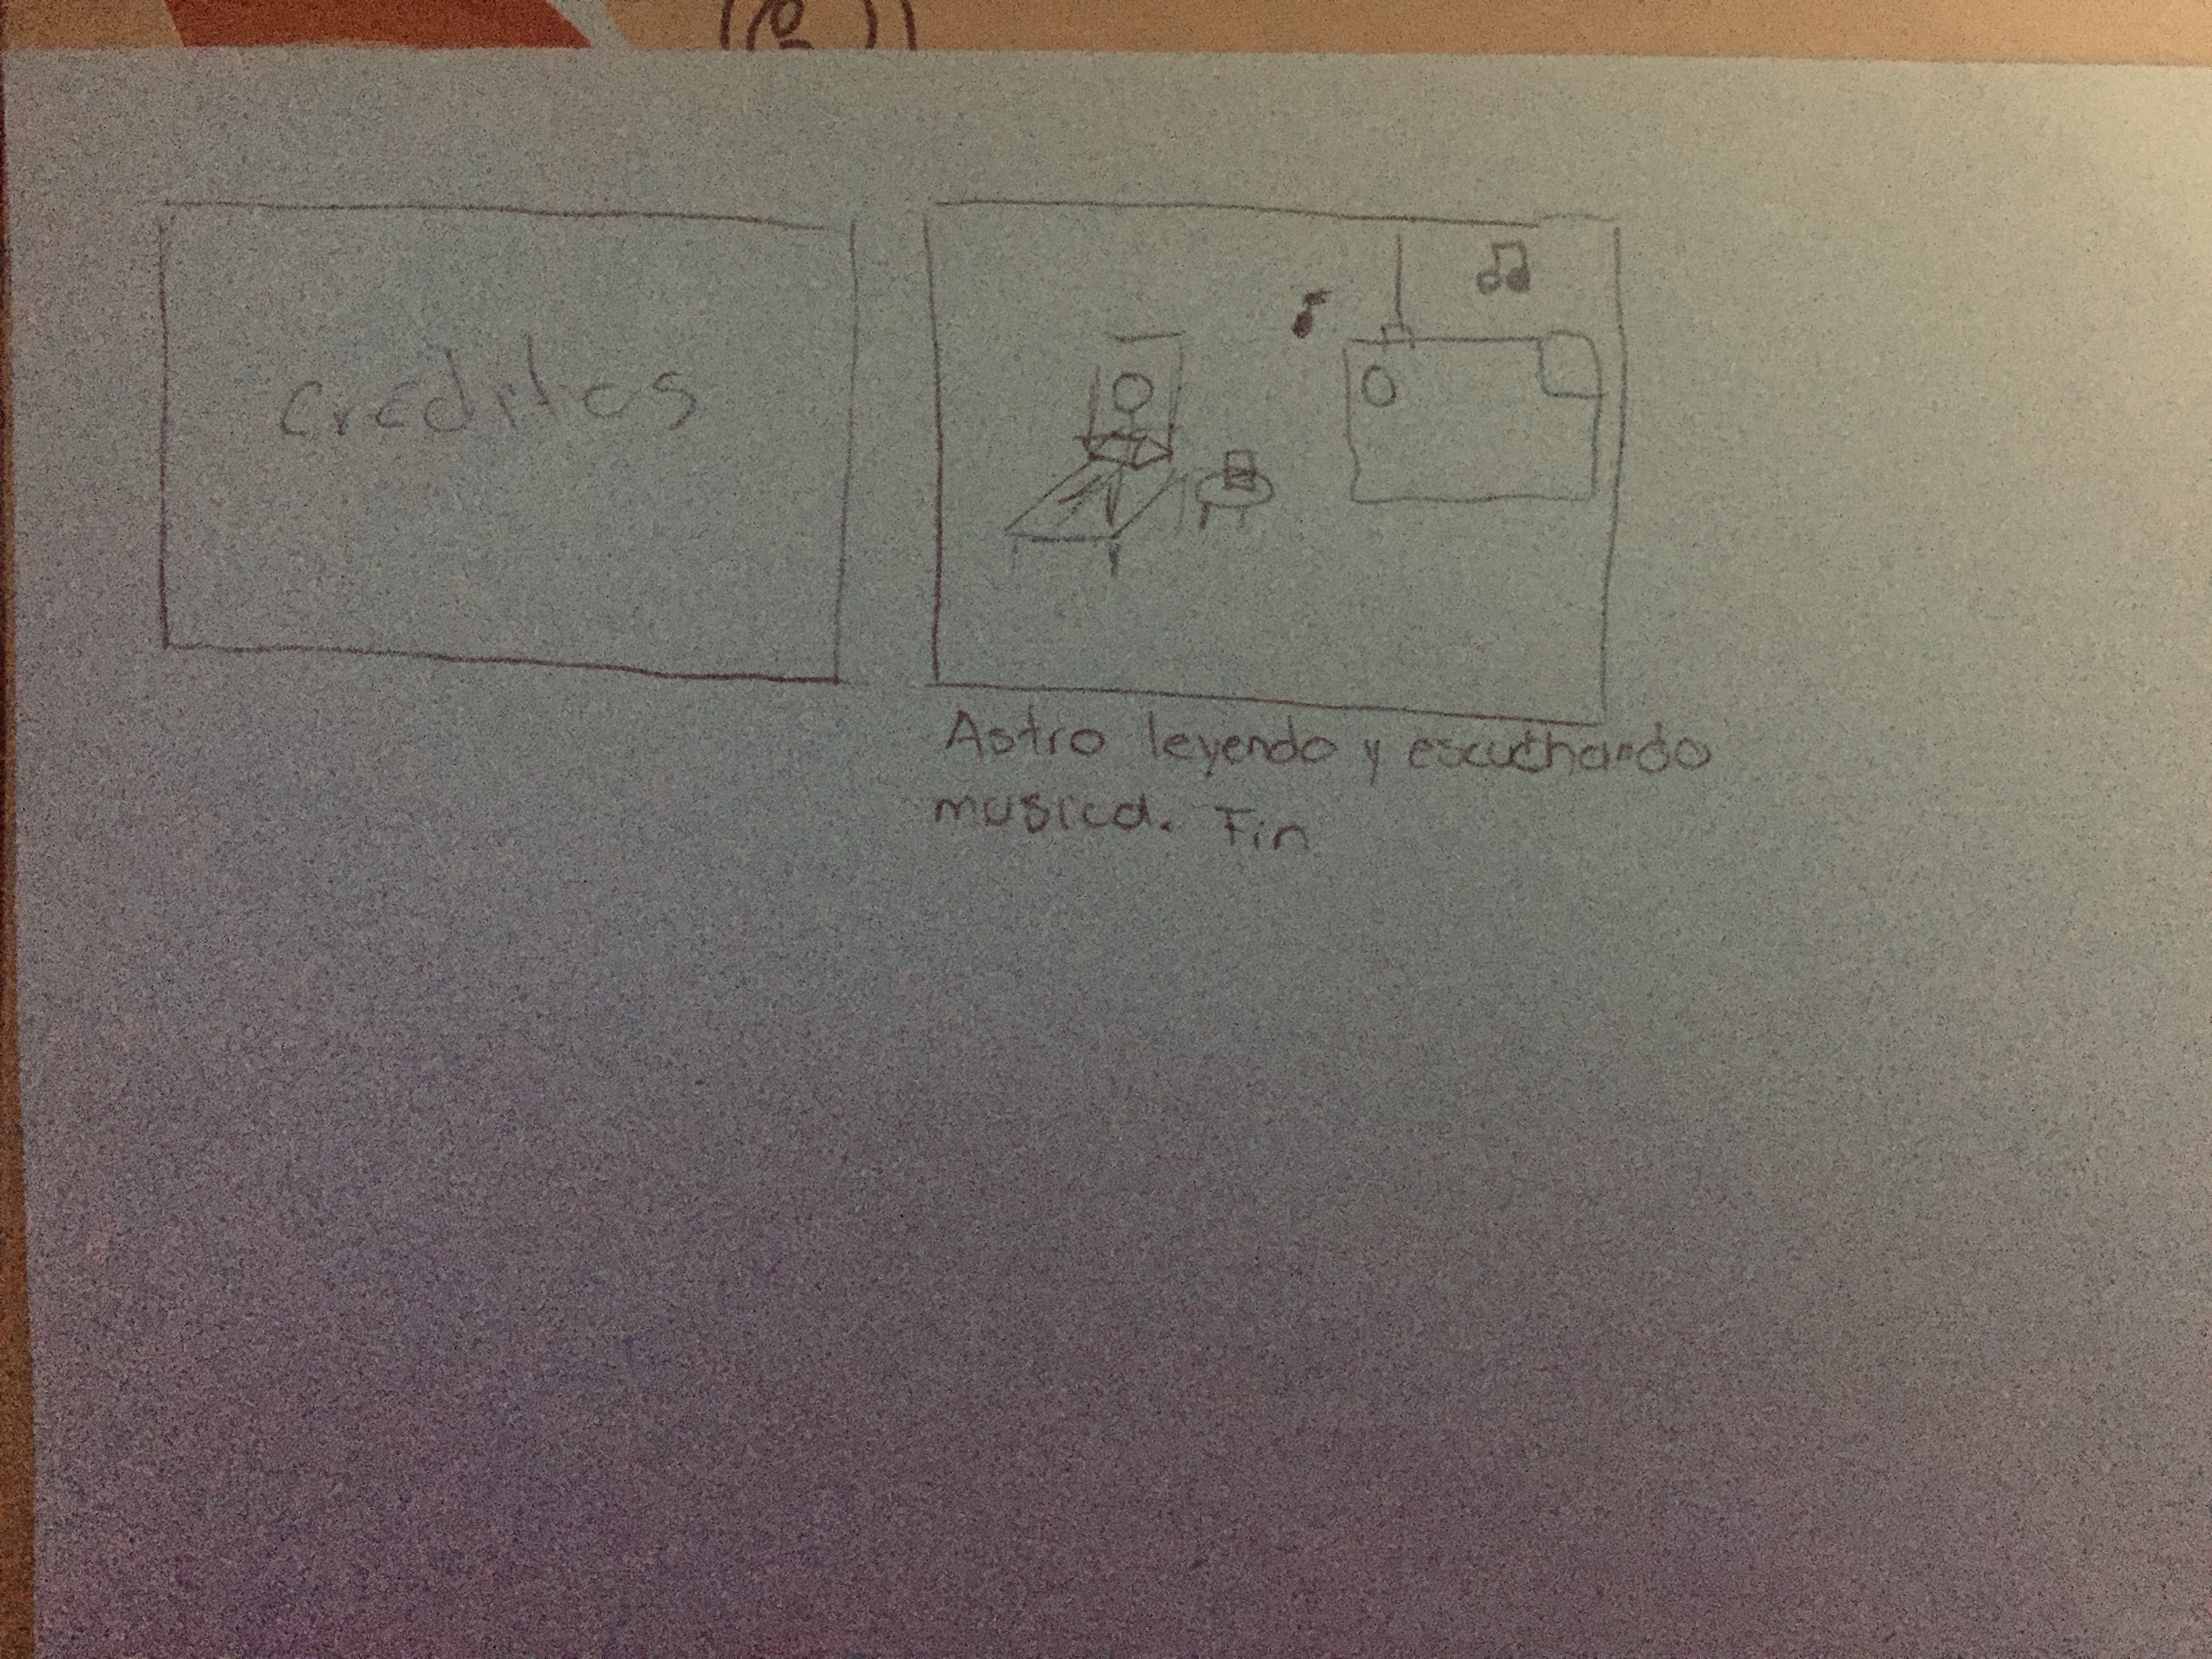 creditos
Astro leyendo y escuchando
musica. Fin